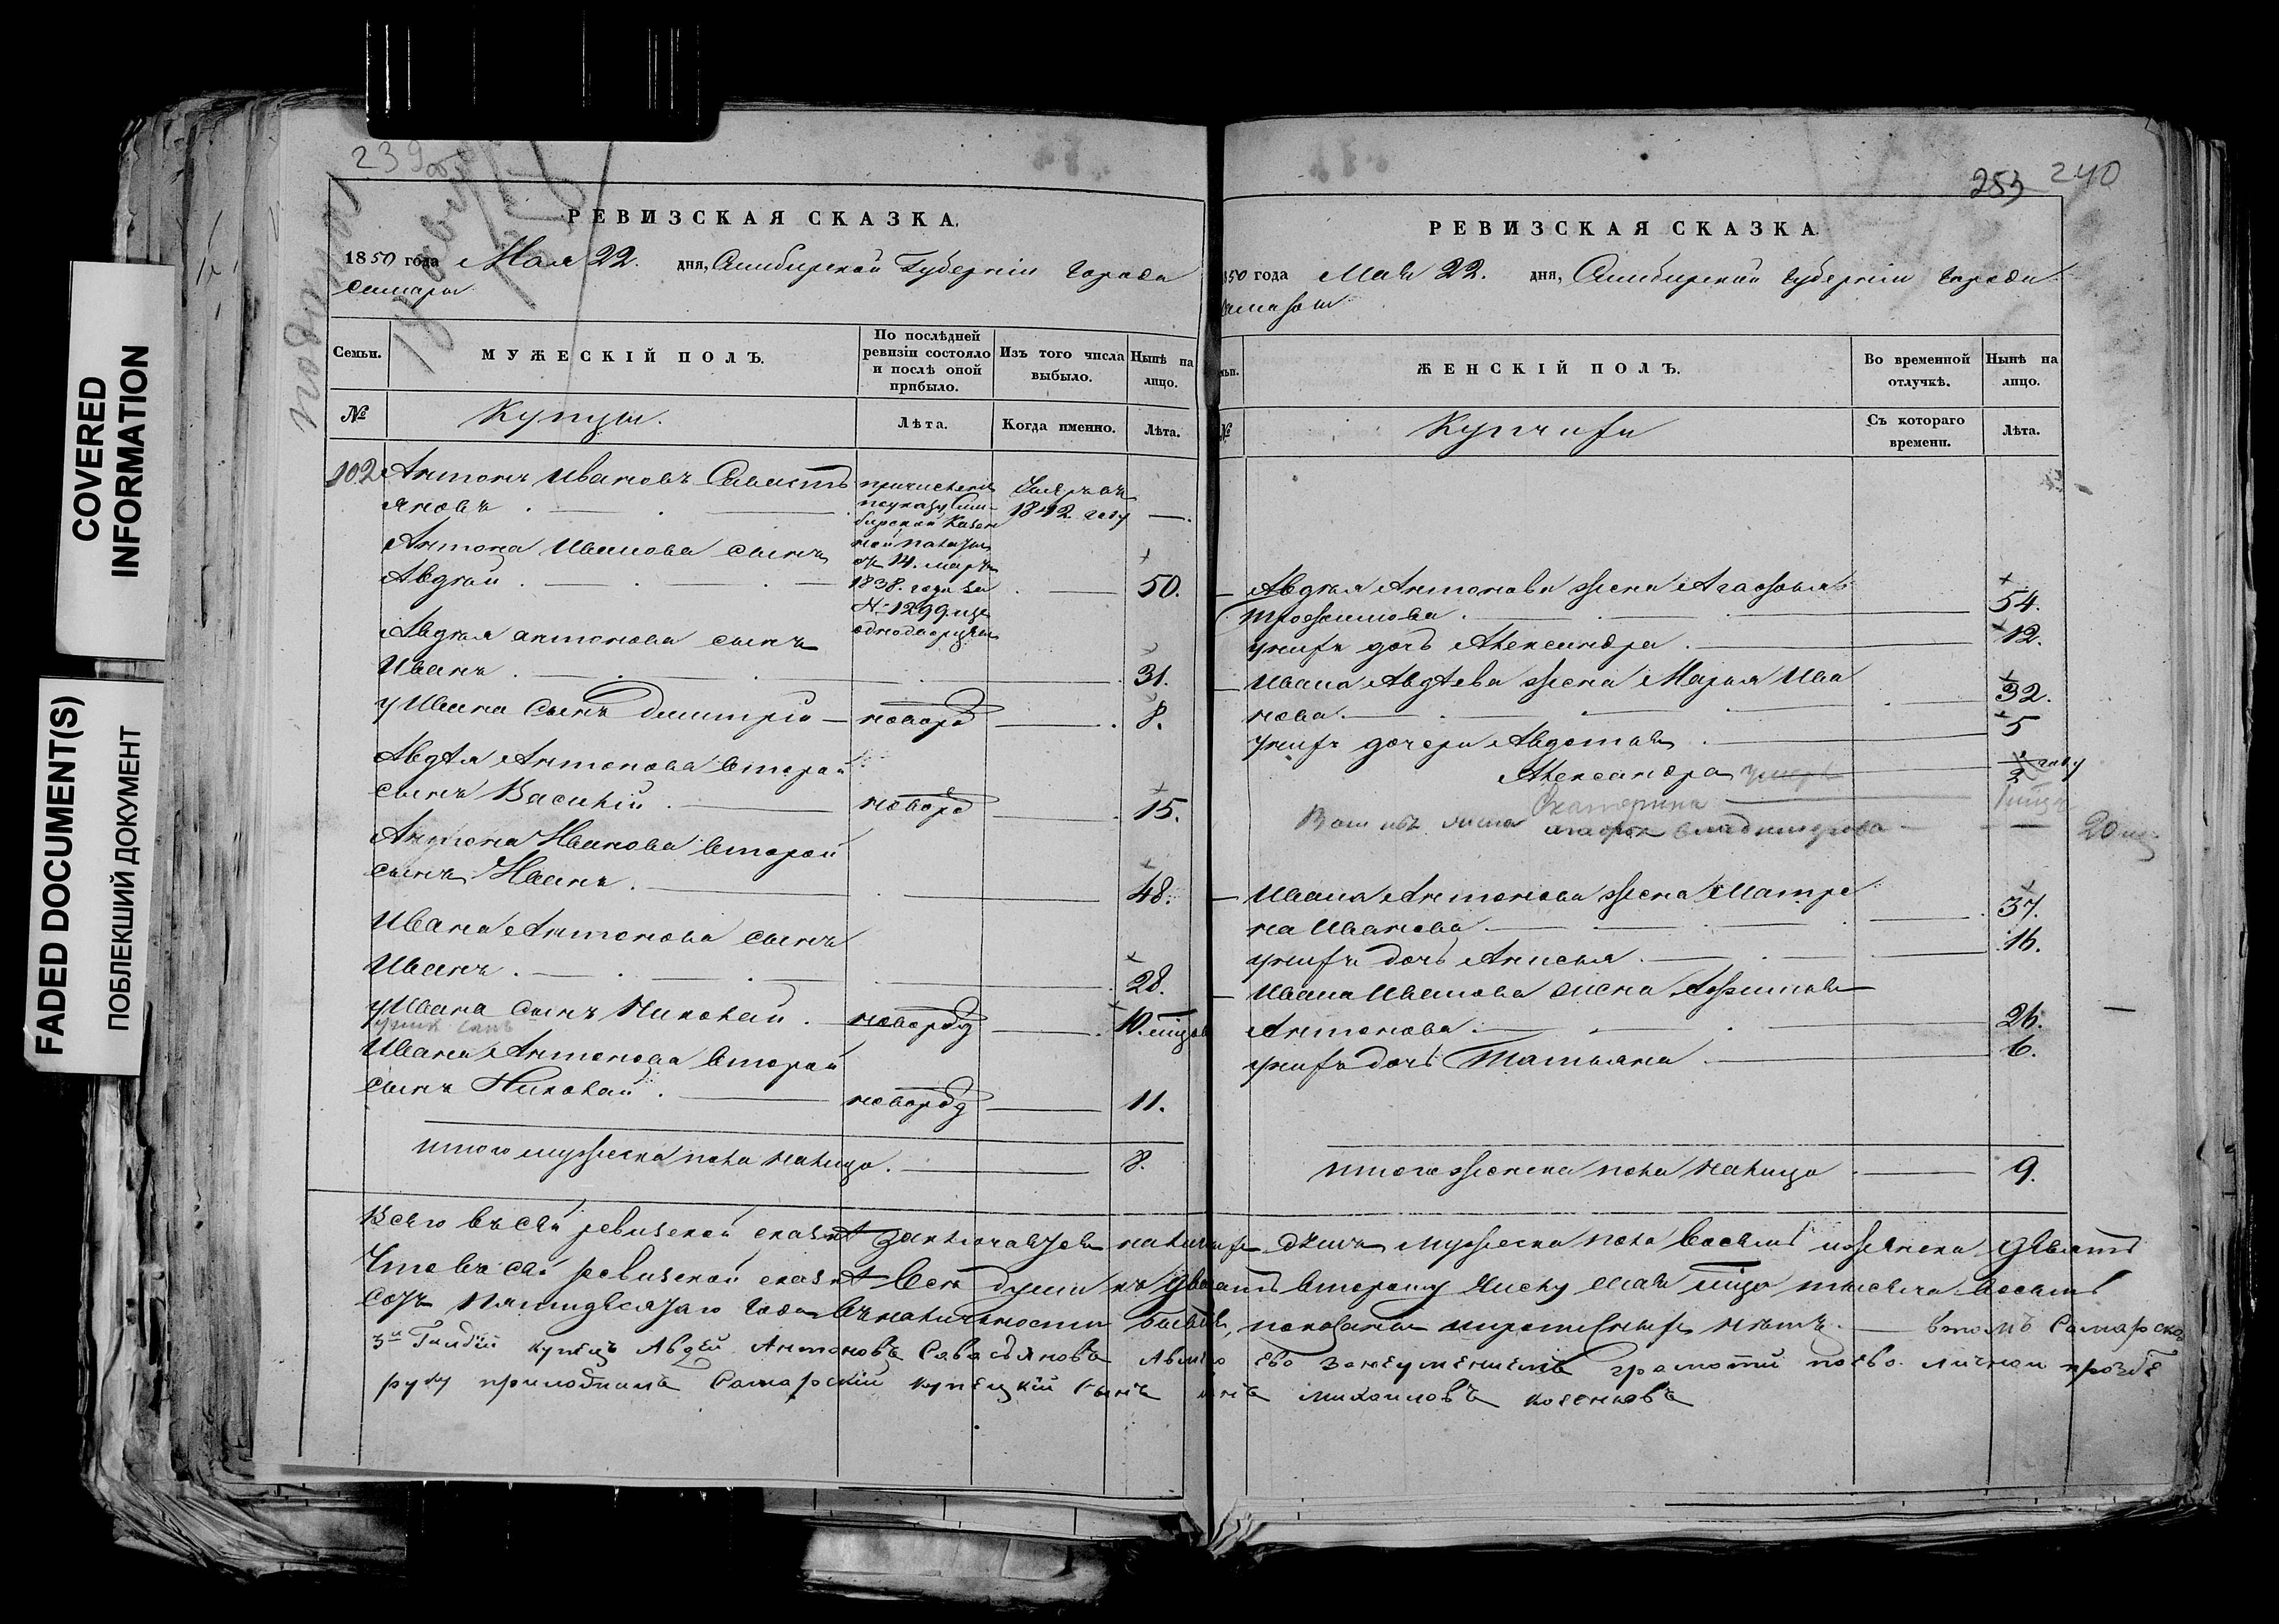 COVERED
INFORMATION
FADED DOCUMENT(S)
ПОБЛЕКШИЙ ДОКУМЕНТ
239
РЕВИЗСКАЯ СКАЗКА.
1850 года Мая 22. дня, Симбирской Губерніи города
Самары
Семьи.
МУЖЕСКІЙ ПОЛЪ.
По послѣдней
ревизіи состояло
и послѣ оной
прибыло.
Изъ того числа
выбыло.
Нынѣ на
лицо.
№
Купцы.
Лѣта.
Когда именно.
Лѣта.
102 Антонъ Ивановъ Савасть
яновъ
причислены
по указу Сим-
бирской Казен
ной палаты
14. марта
1838. года за
№ 1299
1842 году
Антона Иванова сынъ
Авдей 50.
Авдея антонова сынъ
Иванъ 31.
у Ивана сынъ Дмитрій новорд 8.
Авдея Антонова второй
сынъ Василій новорд 15.
Антона Иванова второй
сынъ Иванъ 48.
Ивана Антонова сынъ
Иванъ 28.
у Ивана сынъ Николай новорд 10.
Ивана Антонова второй
сынъ Николай новорд 11.
итого мужеска пола налицо. 8.
253 240
РЕВИЗСКАЯ СКАЗКА
1850 года Мая 22. дня, Симбирской губерніи города
ЖЕНСКІЙ ПОЛЪ.
Во временной
отлучкѣ.
Нынѣ на
лицо.
№
Купчихи
Съ котораго
времени.
Лѣта.
Авдея Антонова жена Агафья
Трофимова 54.
у нихъ дочь Александра 12.
Ивана Авдѣева жена Марья Ива
нова 32.
у нихъ дочери Авдотья 5
Александра
Екатерина
Ивана Антонова жена Матре
на Иванова 37.
у нихъ дочь Анисья 16.
Ивана Иванова жена Афимья
Антонова 26.
у нихъ дочь Татьяна 6.
итого женска пола налицо 9.
Всего въ сей ревизской сказкѣ заключается наличныхъ душъ мужеска пола восемь и женска девять
Что въ сей ревизской сказкѣ всѣ души къ двадцать второму числу мая тысяча восемь
сотъ пятидесятаго года въ наличности бывшія, показаны и прописныхъ нѣтъ. в томъ Самарской
3й Гилдіи купецъ Авдей Антоновъ Савастьяновъ а вмѣсто ево за неумѣниемъ грамоти по ево личной прозбе
руку приложилъ Самарский купецкий сынъ михаиловъ